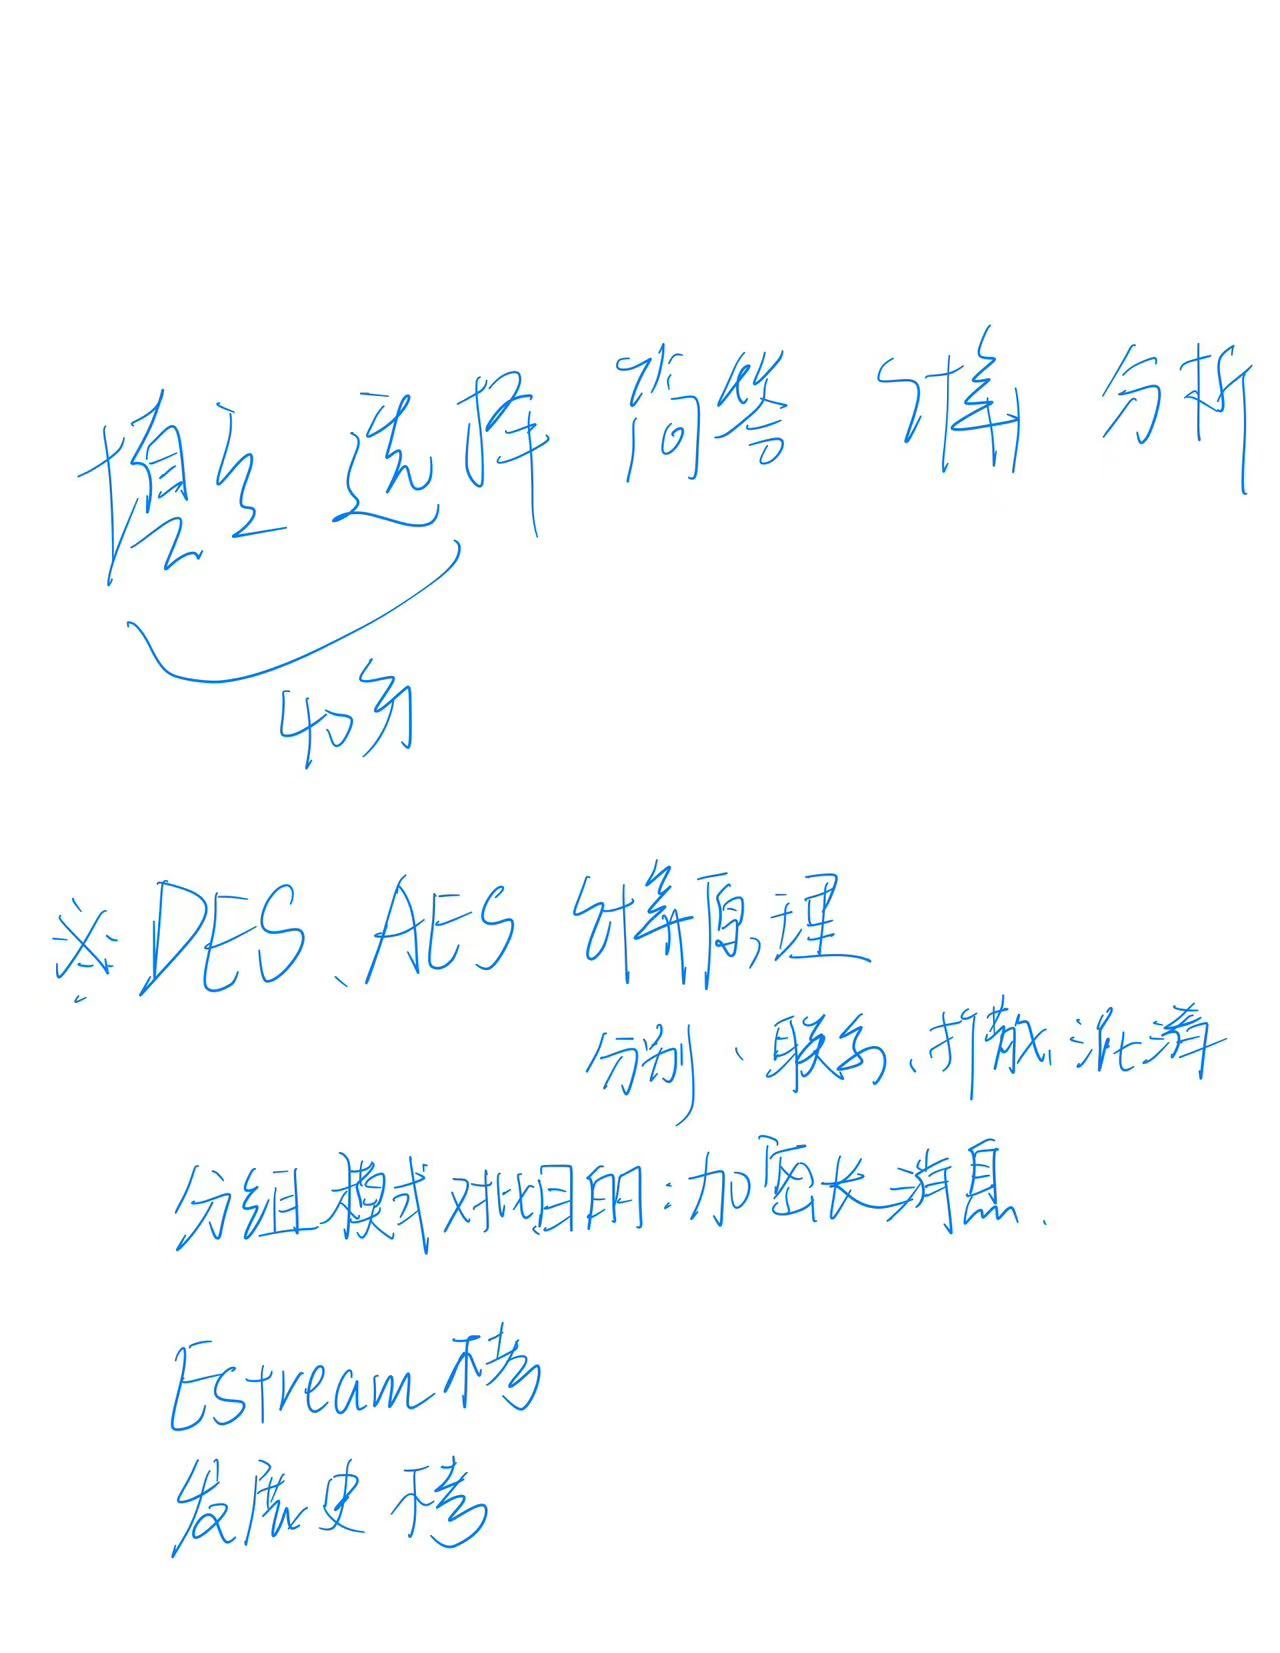 填空 选择 简答 计算 分析
40分
※DES、AES 计算原理
分别、联系、扩散、混淆
分组模式对比目的：加密长消息.
Estream 不考
发展史 不考